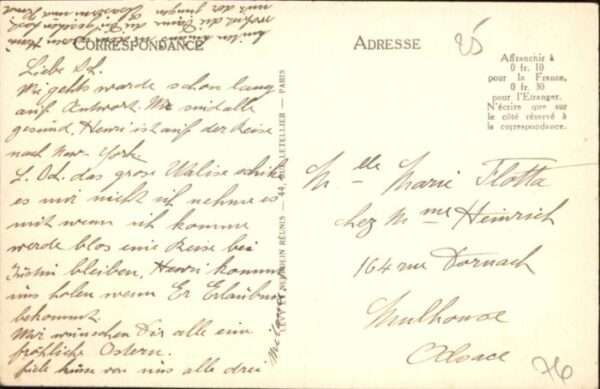 CORRESPONDANCE
Liebe Sch.
Wie gehts warde schon lang
auf Antwort. Wir sind alle
gesund, Henri ist auf der Reise
nach New-York
L. Sch. das grose Walise schike
es mir nicht ich nehme es
mit wenn ich komme
werde blos eine Reise bei
Justin bleiben, Henri kommt
uns holen wenn Er Erlaubnis
bekommt.
Wir wünschen Dir alle eine
fröhliche Ostern.
viele küsse von uns alle drei
LEVY ET NEURDEIN RÉUNIS — 44, RUE LETELLIER — PARIS
ADRESSE
25
Affranchir à
0 fr. 10
pour la France,
0 fr. 30
pour l'Etranger.
N'écrire que sur
le côté réservé à
la correspondance.
Mlle Marie Flotta
chez Mme Heinrich
164 rue Dornach
Mulhouse
Alsace
76